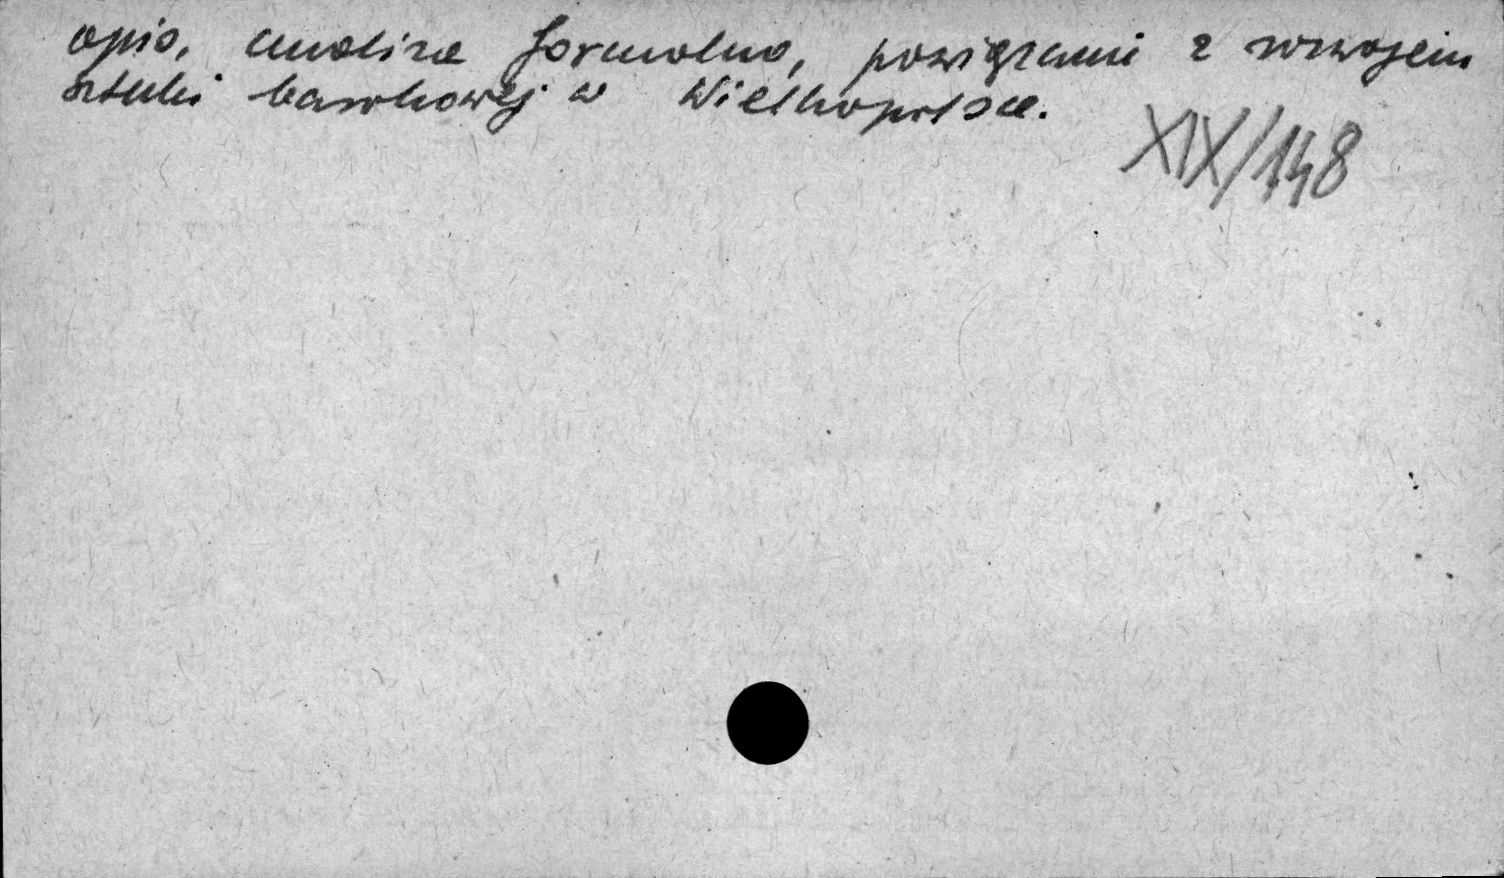 opis, analiza formalna, powiązanie z rozwojem
sztuki barokowej w Wielkopolsce.
XIX/148